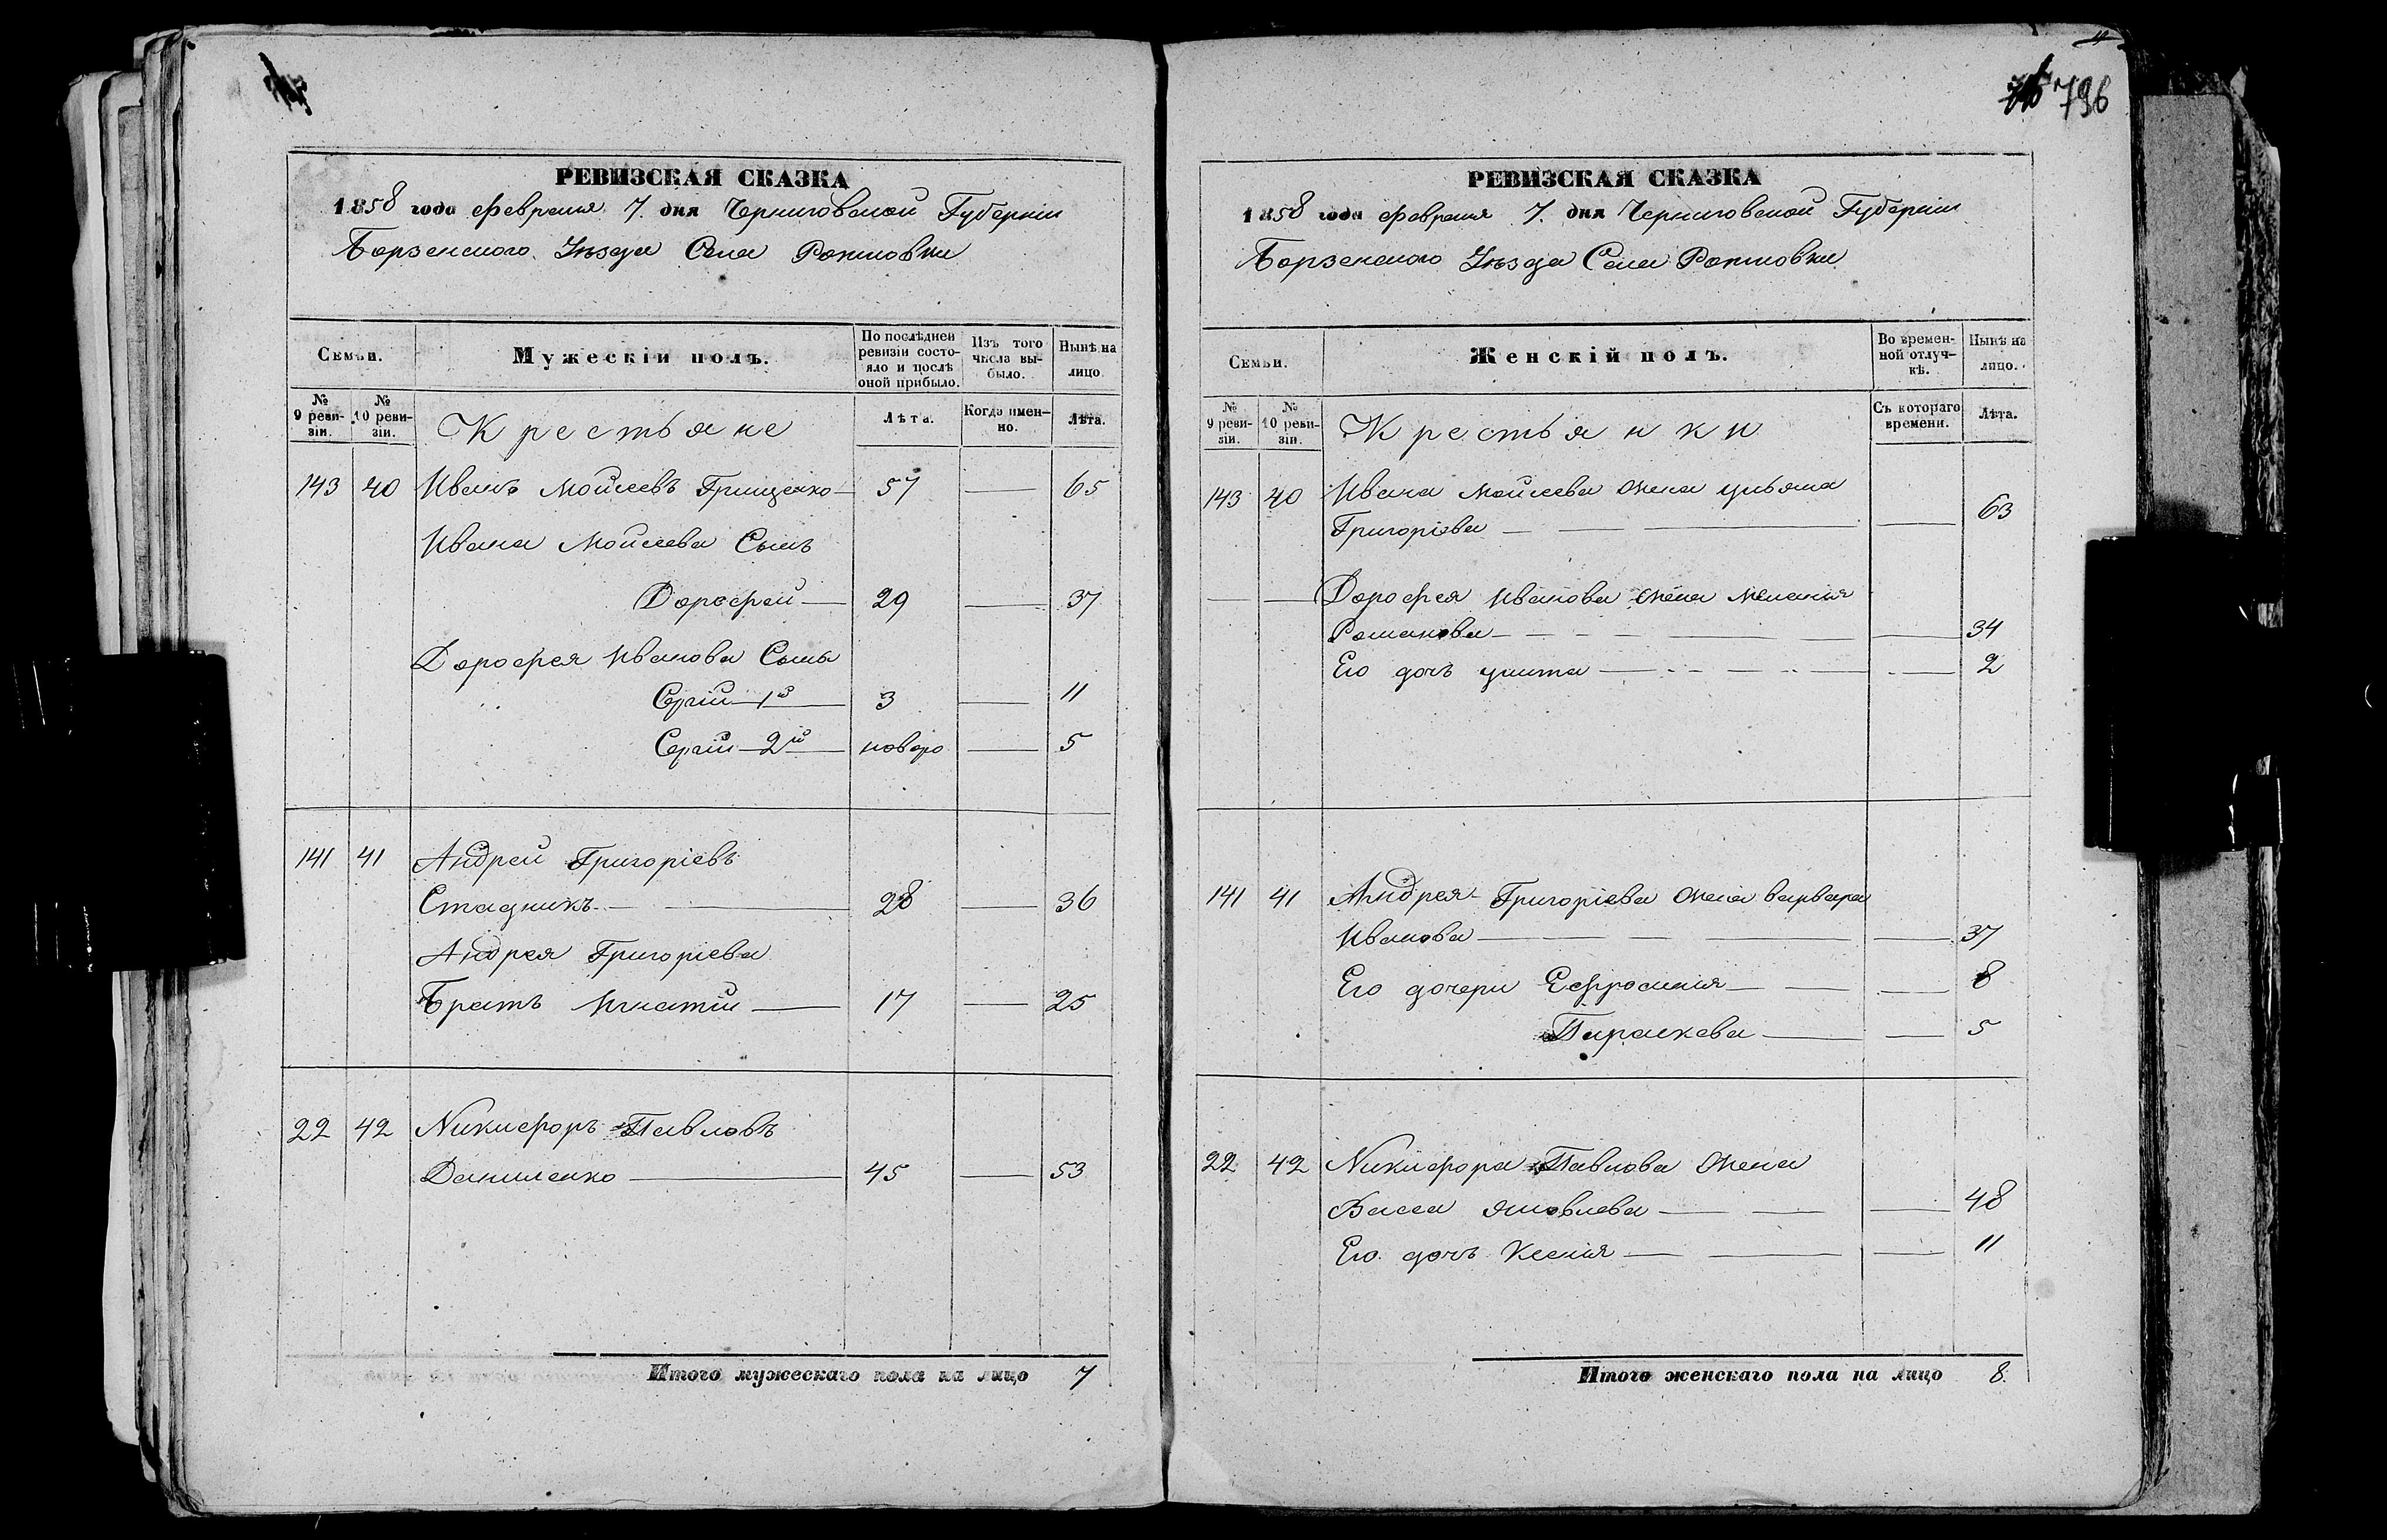 796
РЕВИЗСКАЯ СКАЗКА
1858 года февраля 7. дня Черниговской Губерніи
Борзенского Уѣзда Села
Семьи.
Мужескій полъ.
По послѣдней ревизіи состо-
яло и послѣ
оной прибыло.
Изъ того
числа вы-
было.
Нынѣ на
лицо
№
9 реви-
зіи.
№
10 реви-
зіи.
Крестьяне
Лѣта.
Когда имен-
но.
Лѣта.
143 40 Иванъ Моисеевъ Грищенко 57 — 65
Ивана Моисеева Сынъ
Дорофей — 29 — 37
Дорофея Иванова Сыны
Сергій 1й 3 — 11
Сергій 2й новоро — 5
141 41 Андрей Григоріевъ
Стадникъ — 28 — 36
Андрея Григоріева
Братъ Игнатій — 17 — 25
22 42 Никифоръ Павловъ
Даниленко — 45 — 53
Итого мужескаго пола на лицо 7
РЕВИЗСКАЯ СКАЗКА
1858 года февраля 7. дня Черниговской Губерніи
Борзенского Уѣзда Села
Семьи.
Женскій полъ.
Во времен-
ной отлуч-
кѣ.
Нынѣ на
лицо.
№
9 реви-
зіи.
№
10 реви-
зіи.
Крестьянки
Съ котораго
времени.
Лѣта.
143 40 Ивана Моисеева жена ульяна
Григоріева — — 63
— — Дорофея Иванова жена Меланія
Романова — — 34
Его дочь улита — — 2
141 41 Андрея Григоріева жена варвара
Иванова — — 37
Его дочери Ефросинія — — 8
Параскева — — 5
22 42 Никифора Павлова жена
Васса яковлева — — 48
Его дочь Ксенія — — 11
Итого женскаго пола на лицо 8.